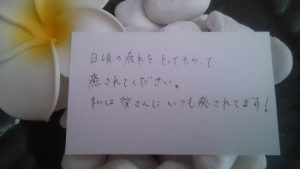 日頃の疲れをとってもらって
癒されてください。
私は皆さんにいつも癒されてます!